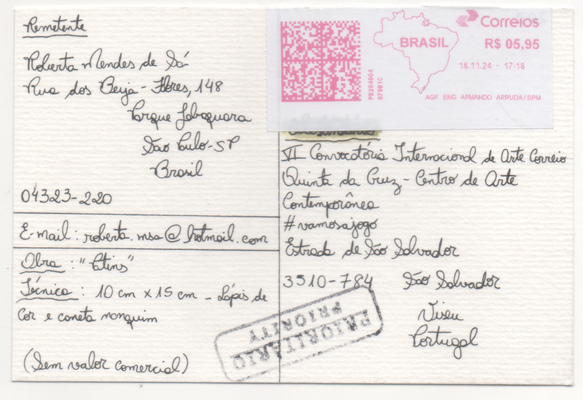 Remetente
Roberta Mendes de Sá
Rua dos Beija-Flores, 148
Parque Jabaquara
São Paulo-SP
Brasil
04323-220
E-mail: roberta.msa@hotmail.com
Obra: "Patins"
Técnica: 10 cm x 15 cm - Lápis de
Cor e caneta nanquim
(Sem valor comercial)
Correios
BRASIL
R$ 05,95
18.11.24 - 17:18
AGF ENG ARMANDO ARRUDA/SPM
VI Convocatória Internacional de Arte Correio
Quinta da Cruz - Centro de Arte
Contemporânea
#vamosajogo
Estrada de São Salvador
3510-784 São Salvador
Viseu
Portugal
PRIORITÁRIO
PRIORITY